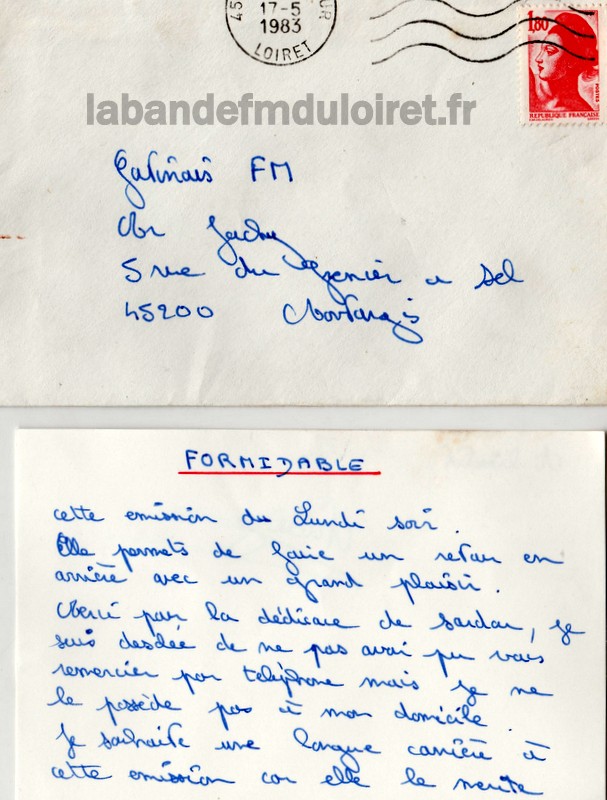 45
17-5
1983
LOIRET
1,80
POSTES
REPUBLIQUE FRANÇAISE
labandefmduloiret.fr
Gatinais FM
Mr Jacky
5 rue du Grenier a Sel
45200 Montargis
FORMIDABLE
cette emission du Lundi soir.
Elle permets de faire un retour en
arrière avec un grand plaisir.
Merci pour la dédicace de Sardou, je
suis desolée de ne pas avoir pu vous
remercier par telephone mais je ne
le possède pas à mon domicile.
Je souhaite une longue carrière à
cette emission car elle le merite